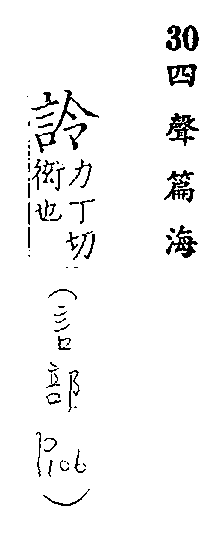 30 四聲篇海
詅 力丁切
衒也
(言部
P106)